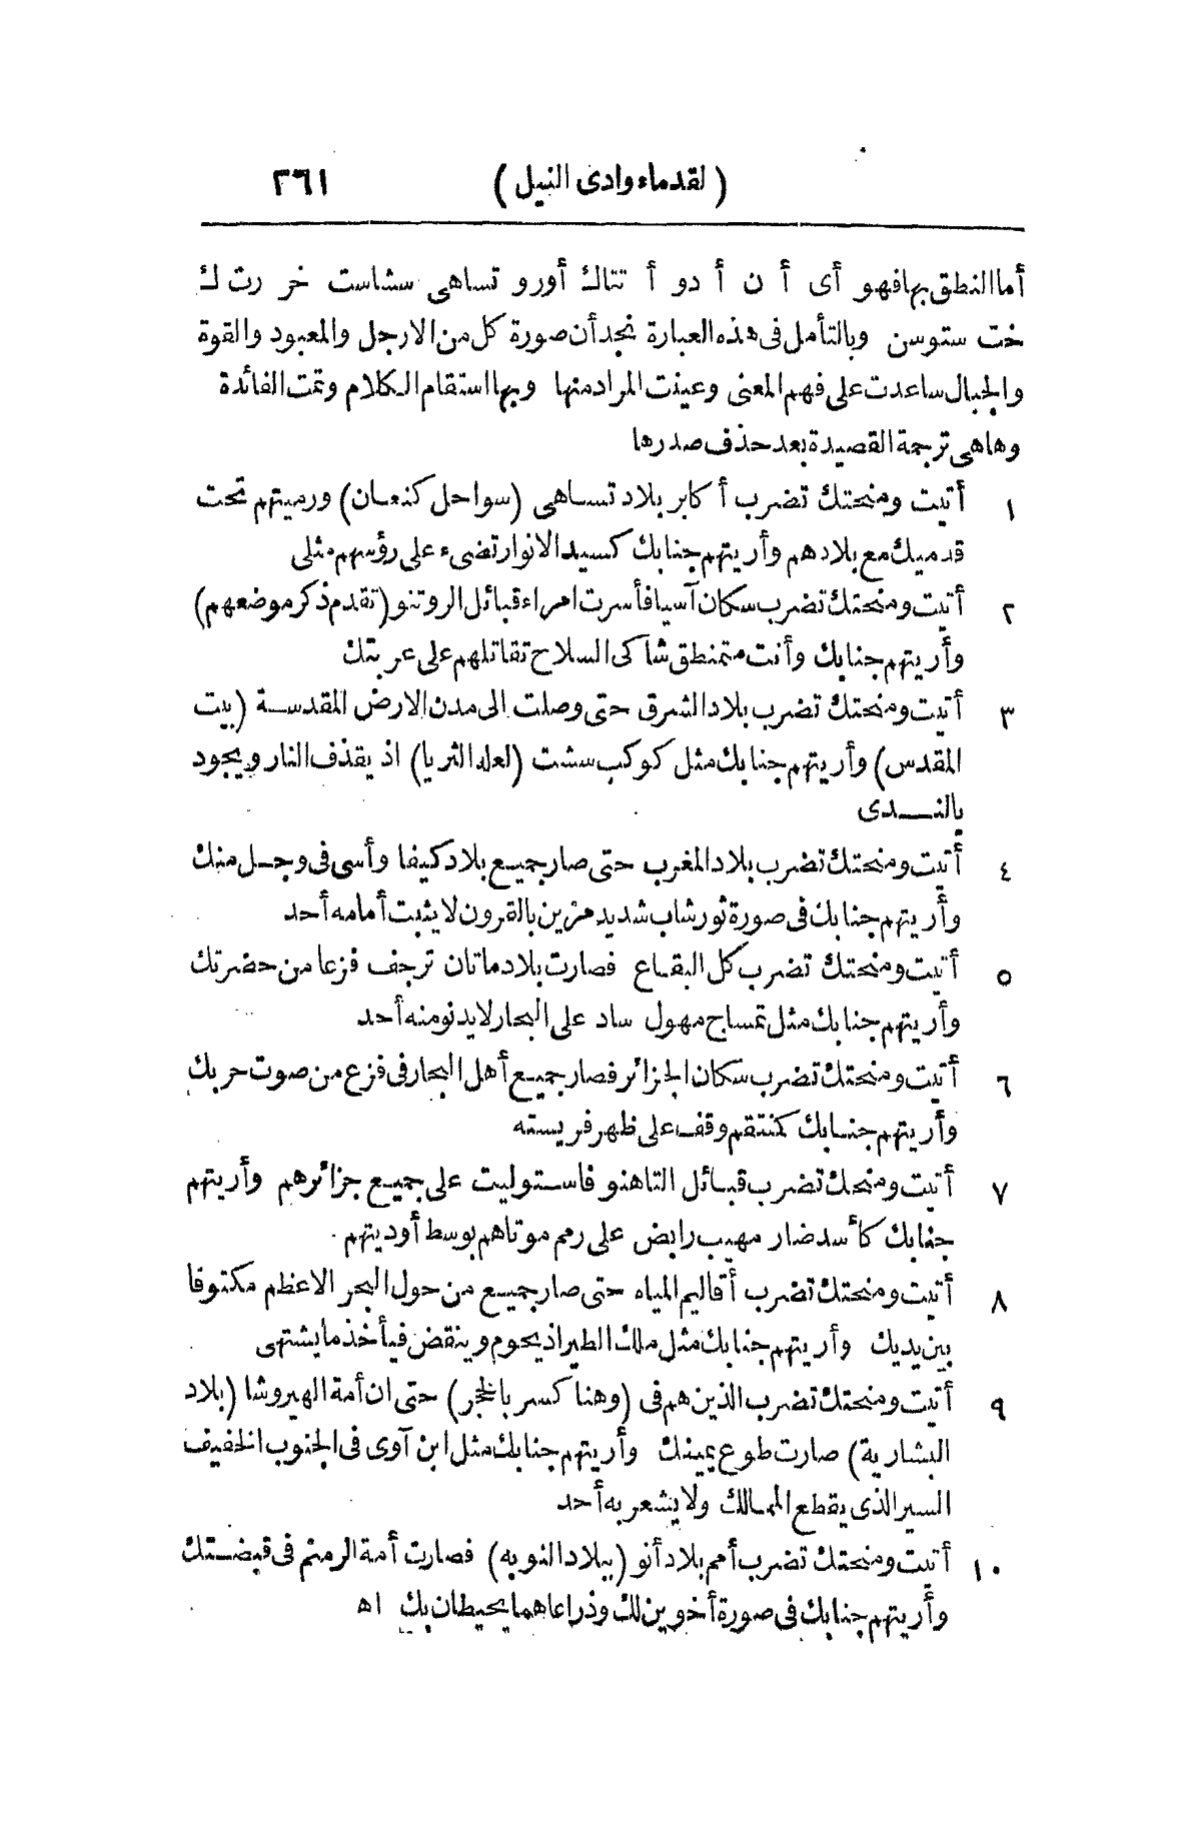 (لقدماء وادى النيل) ٢٦١
أما النطق بها فهو أى أ ن أ دو أ تتاك أورو تساهى سشاست خر رت ك
خت ستوسن وبالتأمل فى هذه العبارة نجد أن صورة كل من الارجل والمعبود والقوة
والجبال ساعدت على فهم المعنى وعينت المراد منها وبها استقام الكلام وتمت الفائدة
وهاهى ترجمة القصيدة بعد حذف صدرها
١ أتيت ومنحتك تضرب أكابر بلاد تساهى (سواحل كنعان) ورميتهم تحت
قدميك مع بلادهم وأريتهم جنابك كسيد الانوار تضىء على رؤسهم مثلى
٢ أتيت ومنحتك تضرب سكان آسيا فأسرت امراء قبائل الروتنو (تقدم ذكر موضعهم)
وأريتهم جنابك وأنت متمنطق شاكى السلاح تقاتلهم على عربتك
٣ أتيت ومنحتك تضرب بلاد الشرق حتى وصلت الى مدن الارض المقدسة (بيت
المقدس) وأريتهم جنابك مثل كوكب سشت (لعله الثريا) اذ يقذف النار ويجود
بالندى
٤ أتيت ومنحتك تضرب بلاد المغرب حتى صار جميع بلاد كيفا وأسى فى وجل منك
وأريتهم جنابك فى صورة ثور شاب شديد مزين بالقرون لا يثبت أمامه أحد
٥ أتيت ومنحتك تضرب كل البقاع فصارت بلاد ماتان ترجف فزعا من حضرتك
وأريتهم جنابك مثل تمساح مهول ساد على البحار لايدنو منه أحد
٦ أتيت ومنحتك تضرب سكان الجزائر فصار جميع أهل البحار فى فزع من صوت حربك
وأريتهم جنابك كمنتقم وقف على ظهر فريسته
٧ أتيت ومنحك تضرب قبائل التاهنو فاستوليت على جميع جزائرهم وأريتهم
جنابك كأسد ضار مهيب رابض على رمم موتاهم بوسط أوديتهم
٨ أتيت ومنحتك تضرب أقاليم المياه حتى صار جميع من حول البحر الاعظم مكتوفا
بين يديك وأريتهم جنابك مثل ملك الطير اذ يحوم وينقض فيأخذ ما يشتهى
٩ أتيت ومنحتك تضرب الذين هم فى (وهنا كسر بالحجر) حتى ان أمة الهيروشا (بلاد
البشارية) صارت طوع يمينك وأريتهم جنابك مثل ابن آوى فى الجنوب الخفيف
السير الذى يقطع الممالك ولا يشعر به أحد
١٠ أتيت ومنحتك تضرب أمم بلاد أنو (ببلاد النوبه) فصارت أمة الرمنم فى قبضتك
وأريتهم جنابك فى صورة أخوين لك وذراعاهما يحيطان بك اه